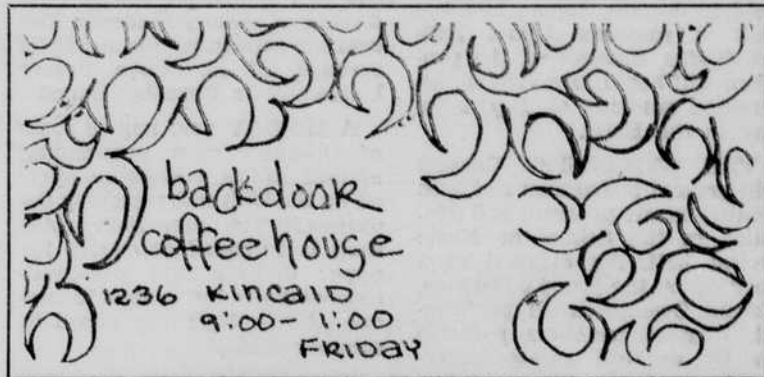 backdoor
coffeehouse
1236 Kincaid
9:00-1:00
FRIDAY